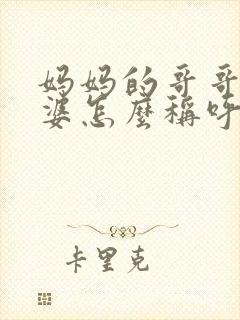 妈妈的哥哥
婆怎麼稱呼
卡里克